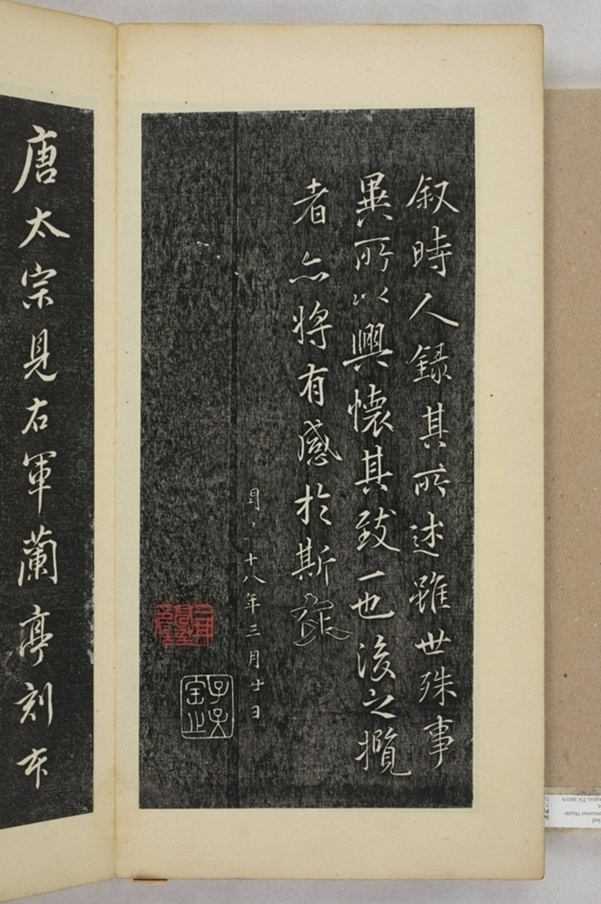 叙時人錄其所述雖世殊事
異所以興懷其致一也後之攬
者亦將有感於斯文
十八年三月 日
唐太宗見右軍蘭亭刻本